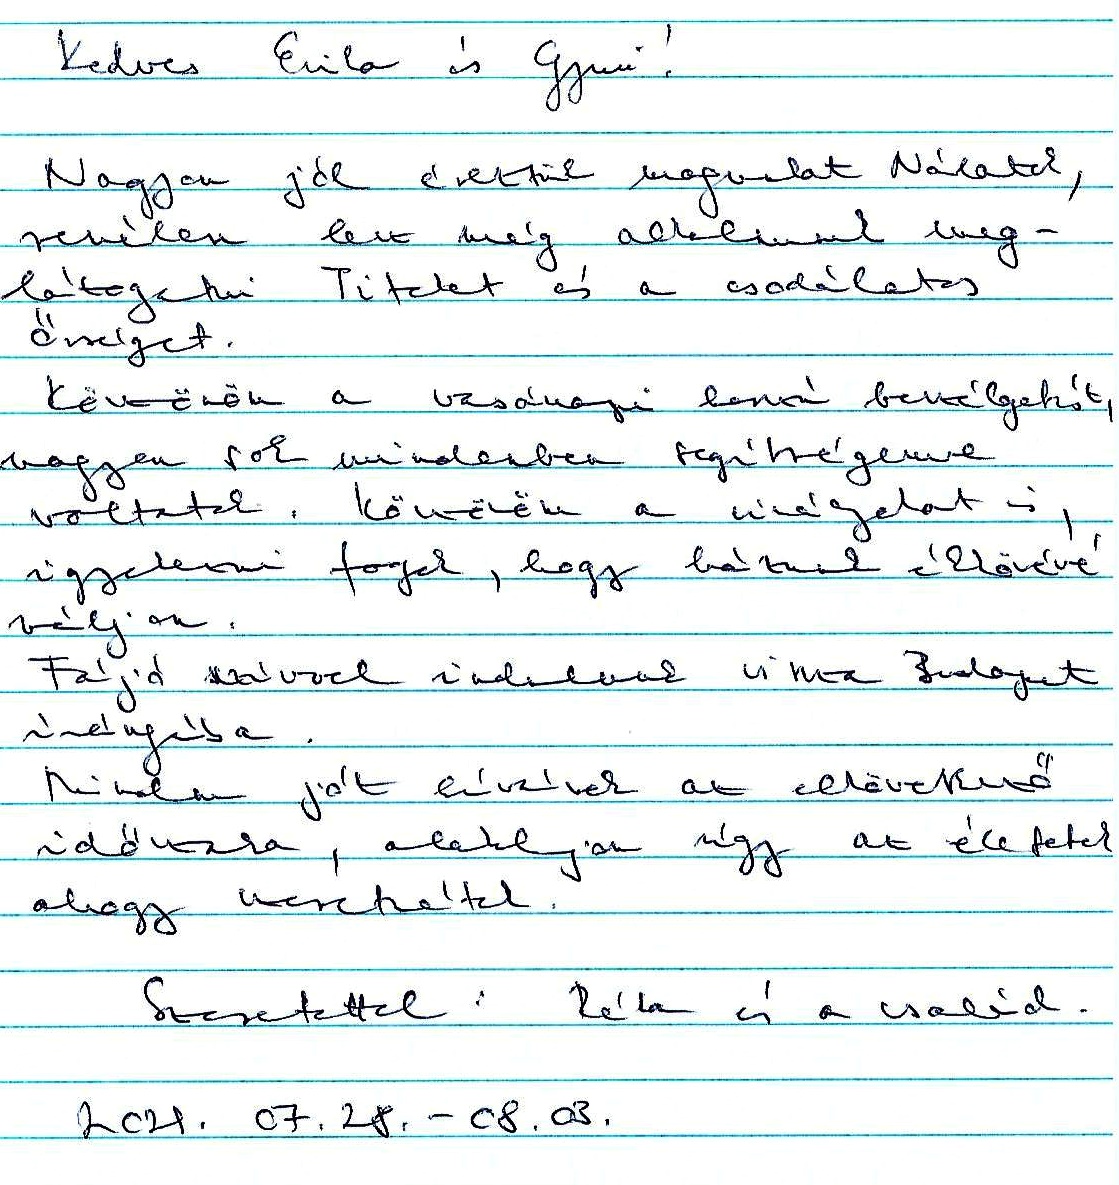 Kedves Erika és Gyuri!
Nagyon jól éreztük magunkat Nálatok,
remélem lesz még alkalmunk meg-
látogatni Titeket és a csodálatos
Őrséget.
Köszönöm a vasárnapi hosszú beszélgetést,
nagyon sok mindenben segítségemre
voltatok. Köszönöm a virágokat is,
igyekezni fogok, hogy házunk ékkövévé
váljon.
Fájó szívvel indulunk vissza Budapest
irányába.
Minden jót kívánok az elkövetkező
időszakra, alakuljon úgy az életetek
ahogy szeretnétek.
Szeretettel: Réka és a család.
2021. 07. 28. - 08. 03.